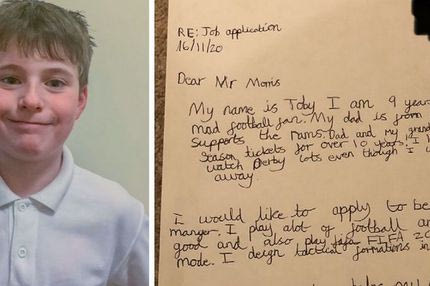 RE: Job application
16/11/20
Dear Mr Morris
My name is Toby I am 9 year
mad football fan. My dad is from
supports the rams. Dad and my grand
Season tickets for over 10 years. I
watch Derby lots even though I
away.
I would like to apply to be
manger. I play alot of football an
good and also play fifa FIFA 20
mode. I deign tactical formations in